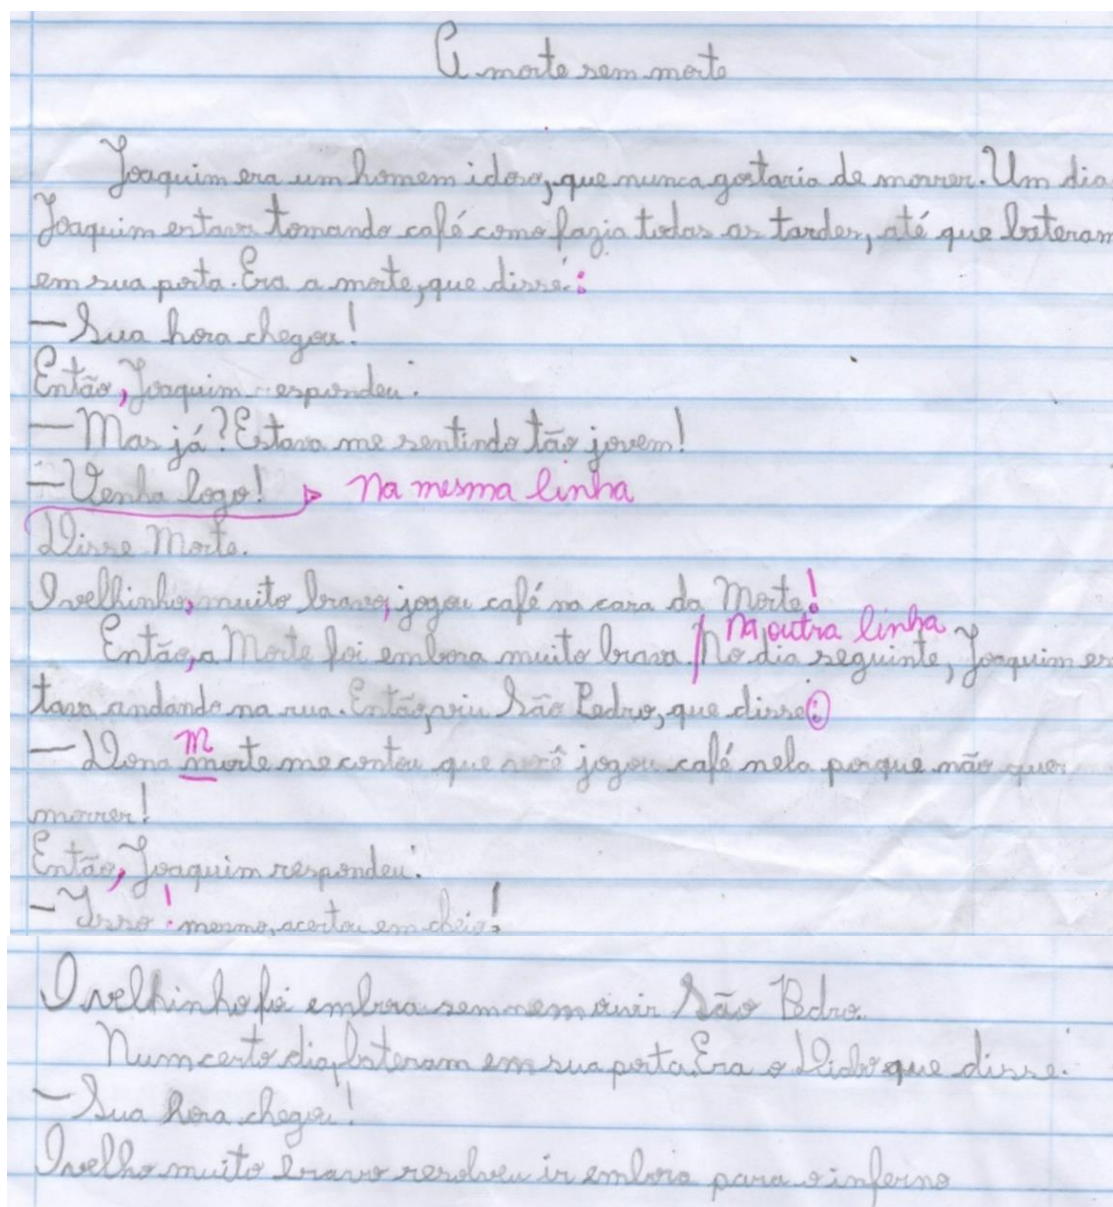 A morte sem morte
Joaquim era um homem idoso, que nunca gostaria de morrer. Um dia
Joaquim estava tomando café como fazia todas as tardes, até que bateram
em sua porta. Era a morte, que disse:
— Sua hora chegou!
Então, Joaquim respondeu:
— Mas já? Estava me sentindo tão jovem!
— Venha logo! Na mesma linha
Disse Morte.
O velhinho, muito bravo, jogou café na cara da Morte!
Na outra linha
Então, a Morte foi embora muito brava / No dia seguinte, Joaquim es
tava andando na rua. Então, viu São Pedro, que disse:
M
— Dona morte me contou que você jogou café nela porque não quer
morrer!
Então, Joaquim respondeu:
— Isso! mesmo, acertou em cheio!
O velhinho foi embora sem nem ouvir São Pedro.
Num certo dia, bateram em sua porta. Era o Diabo que disse:
— Sua hora chegou!
O velho muito bravo resolveu ir embora para o inferno